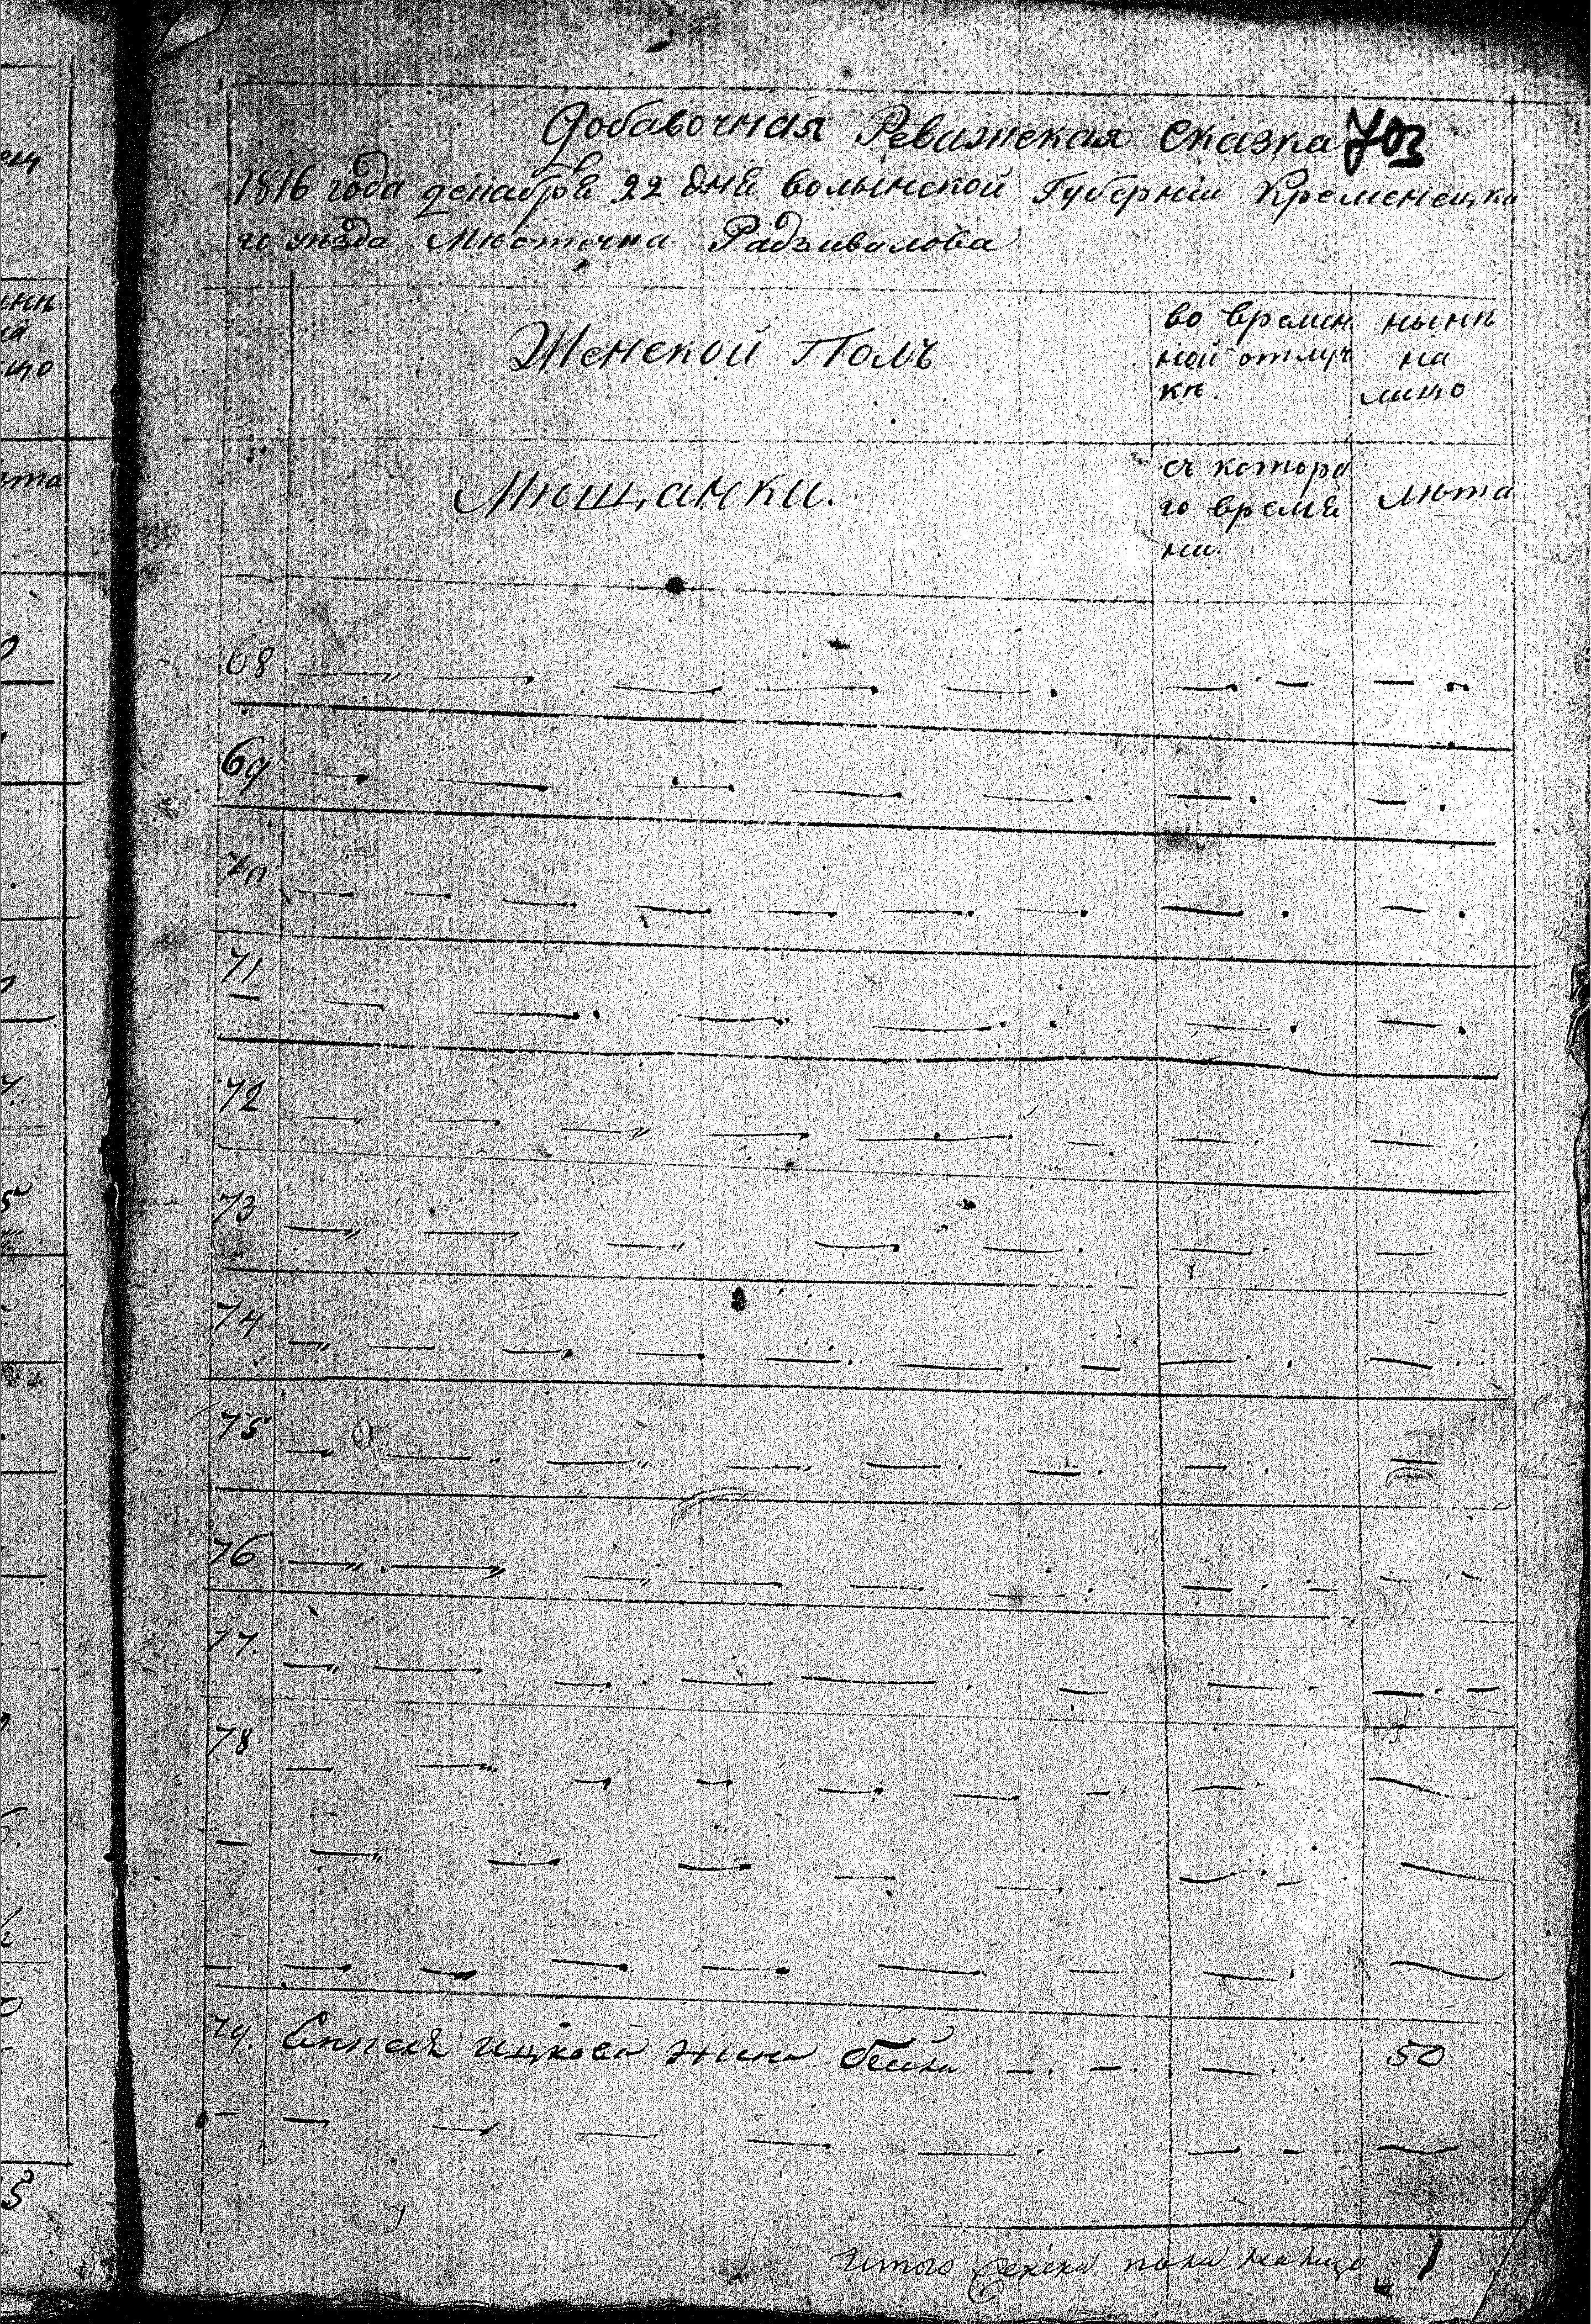 Добавочная Ревижская Сказка 703
1816 года декабря 22 дня волынской Губерніи Кременецка
го уѣзда Мѣстечка Радзивилова
Женской Полъ
во времен
ной отлуч
кѣ.
нынѣ
на
лицо
Мѣщанки.
съ которо
го време
ни.
лѣта
68
69
70
71
72
73
74
75
76
77
78
79. ицкова жена бейла 50
Итого женска пола налицо 1